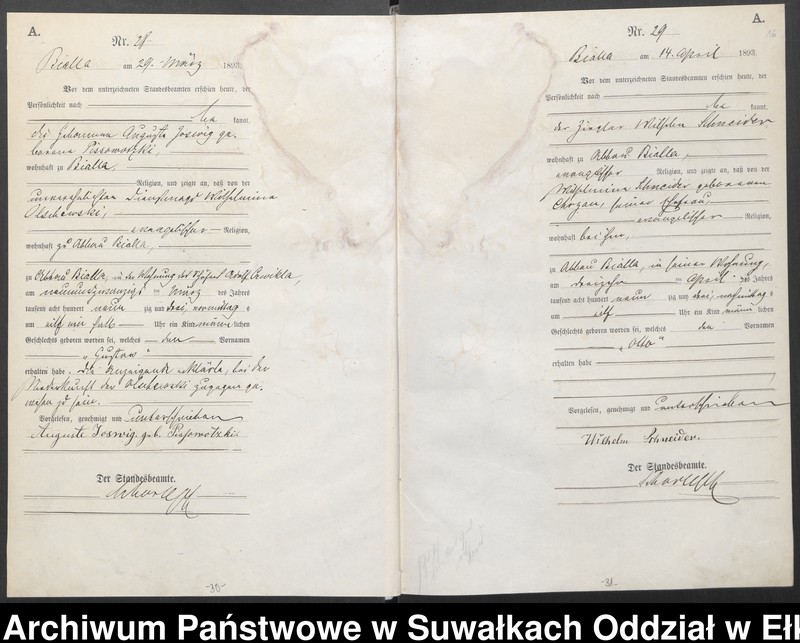 A.
Nr. 28
Bialla am 29. März 1893.
Vor dem unterzeichneten Standesbeamten erschien heute, der
Persönlichkeit nach
be kannt,
die Hebamme Auguste Joswig ge-
borene Pissowotzki,
wohnhaft zu Bialla,
Religion, und zeigte an, daß von der
unverehelichten Dienstmagd Wilhelmine
Olschewski,
evangelischer Religion,
wohnhaft zu Abbau Bialla,
zu Abbau Bialla, in der Wohnung des
am neunundzwanzigsten März des Jahres
tausend acht hundert neunzig und drei vormittags
um elf ein halb Uhr ein Kind männlichen
Geschlechts geboren worden sei, welches den Vornamen
„Gustav“
erhalten habe. Die Anzeigende erklärte, bei der
Niederkunft der Olschewski zugegen ge-
wesen zu sein.
Vorgelesen, genehmigt und unterschrieben
Auguste Joswig geb. Pissowotzki
Der Standesbeamte.
-30-
A.
Nr. 29
Bialla am 14. April 1893.
Vor dem unterzeichneten Standesbeamten erschien heute, der
Persönlichkeit nach
be kannt,
der Ziegler Wilhelm Schneider
wohnhaft zu Abbau Bialla,
evangelischer Religion, und zeigte an, daß von der
Wilhelmine Schneider geborenen
seiner Ehefrau,
evangelischer Religion,
wohnhaft bei ihm,
zu Abbau Bialla, in seiner Wohnung,
am dreizehn ten April des Jahres
tausend acht hundert neunzig und drei, nachmittags
um elf Uhr ein Kind männlichen
Geschlechts geboren worden sei, welches den Vornamen
„Otto“
erhalten habe
Vorgelesen, genehmigt und unterschrieben
Wilhelm Schneider.
Der Standesbeamte.
-31-
Archiwum Państwowe w Suwałkach Oddział w Eł